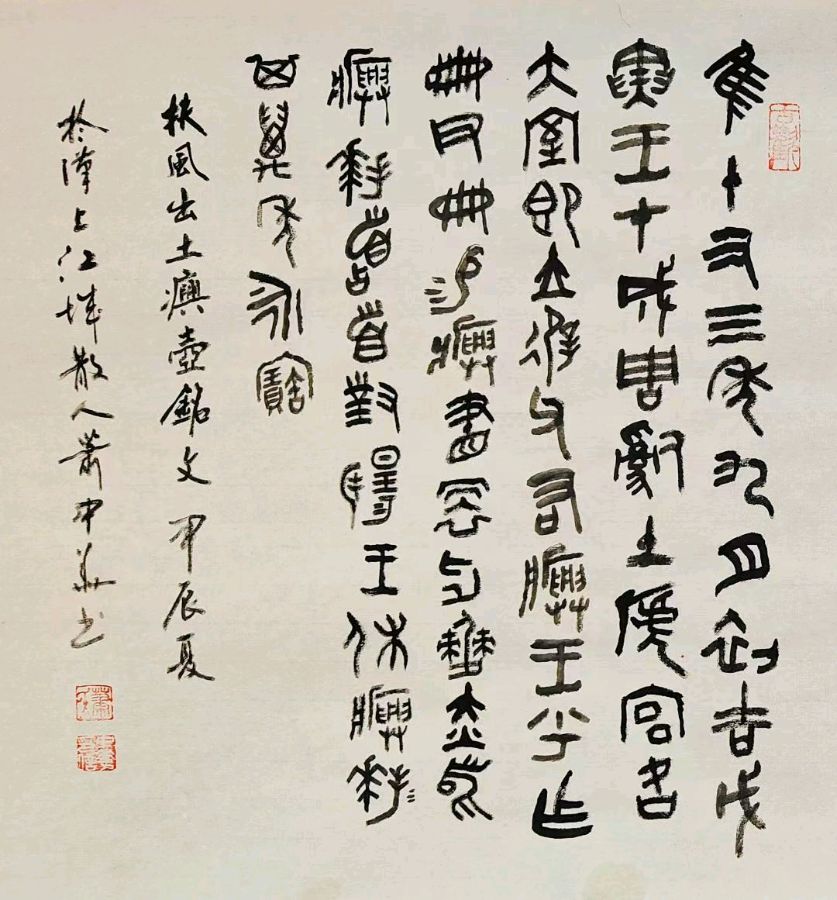 隹十又三年九月初吉戊
寅王才成周𤔲土淲宮各
大室即立𢓊父右𤼈王乎乍
冊尹冊易𤼈畫牙僰赤舄
𤼈拜稽首對揚王休𤼈拜
其萬年永寶
扶風出土𤼈壺銘文 甲辰夏
於漢上江城散人蕭中華書